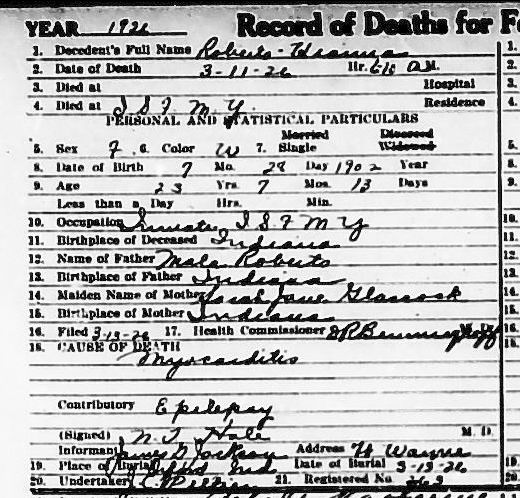 YEAR 1926 Record of Deaths for F
1. Decedent's Full Name Roberts-
2. Date of Death 3-11-26 Hr. A.M.
3. Died at Hospital
4. Died at I S F M Y. Residence
PERSONAL AND STATISTICAL PARTICULARS
Married Divorced
5. Sex F. 6. Color W 7. Single Widowed
8. Date of Birth 7 Mo. 28 Day 1902 Year
9. Age 23 Yrs. 7 Mos. 13 Days
Less than a Day Hrs. Min.
10. Occupation Inmate I S F M Y
11. Birthplace of Deceased Indiana
12. Name of Father Roberts
13. Birthplace of Father Indiana
14. Maiden Name of Mother Sarah Jane Glascock
15. Birthplace of Mother Indiana
16. Filed 3-13-26 17. Health Commissioner M. D.
18. CAUSE OF DEATH
Myocarditis
Contributory Epilepsy
(Signed) N. T. Hale M. D.
Informant James G Jackson Address Ft Wayne
19. Place of Burial Ind Date of Burial 3-13-26
20. Undertaker 21. Registered No.